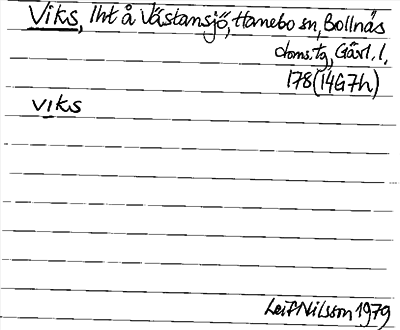 Viks, lht å Västansjö, Hanebo sn, Bollnäs
doms.tg, Gävl. l,
178 (14G7h)
viks
Leif Nilsson 1979